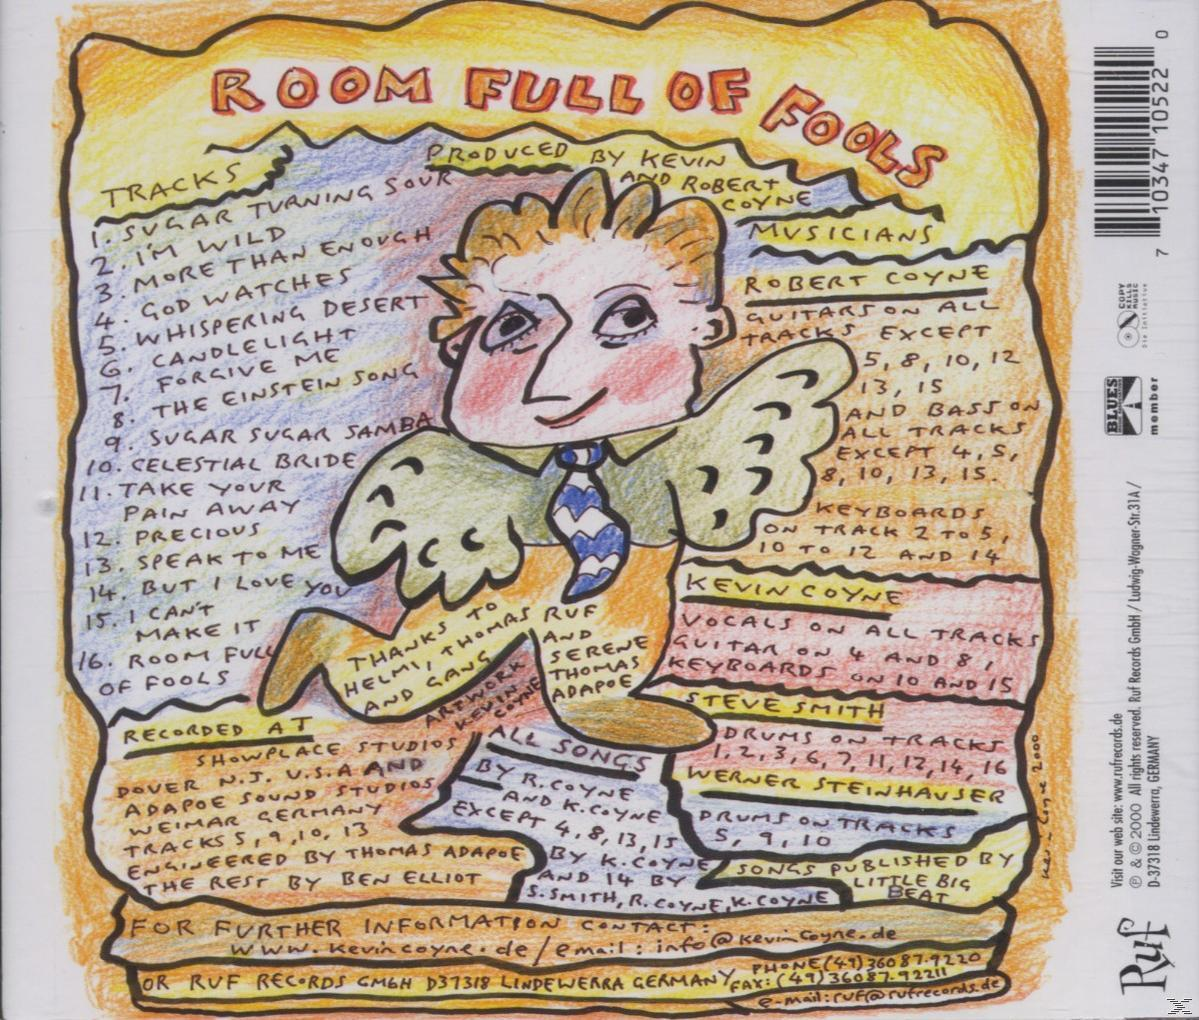 ROOM FULL OF FOOLS
TRACKS
1. SUGAR TURNING SOUR
2. I'M WILD
3. MORE THAN ENOUGH
4. GOD WATCHES
5. WHISPERING DESERT
6. CANDLELIGHT
7. FORGIVE ME
8. THE EINSTEIN SONG
9. SUGAR SUGAR SAMBA
10. CELESTIAL BRIDE
11. TAKE YOUR
PAIN AWAY
12. PRECIOUS
13. SPEAK TO ME
14. BUT I LOVE YOU
15. I CAN'T
MAKE IT
16. ROOM FULL
OF FOOLS
PRODUCED BY KEVIN
AND ROBERT
COYNE
MUSICIANS
ROBERT COYNE
GUITARS ON ALL
TRACKS EXCEPT
5, 8, 10, 12
13, 15
AND BASS ON
ALL TRACKS
EXCEPT 4, 5,
8, 10, 13, 15.
KEYBOARDS
ON TRACK 2 TO 5,
10 TO 12 AND 14
KEVIN COYNE
VOCALS ON ALL TRACKS
GUITAR ON 4 AND 8,
KEYBOARDS ON 10 AND 15
STEVE SMITH
DRUMS ON TRACKS
1, 2, 3, 6, 7, 11, 12, 14, 16
WERNER STEINHAUSER
DRUMS ON TRACKS
5, 9, 10
THANKS TO
HELMI, THOMAS RUF
AND GANG
AND
SERENE
THOMAS
ADAPOE
ARTWORK
KEVIN
COYNE
RECORDED AT
SHOWPLACE STUDIOS
DOVER N.J. U.S.A AND
ADAPOE SOUND STUDIOS
WEIMAR GERMANY
TRACKS 5, 9, 10, 13
ENGINEERED BY THOMAS ADAPOE
THE REST BY BEN ELLIOT
ALL SONGS
BY R. COYNE
AND K. COYNE
EXCEPT 4, 8, 13, 15
BY K. COYNE
AND 14 BY
S. SMITH, R. COYNE, K. COYNE
SONGS PUBLISHED BY
LITTLE BIG
BEAT
Kevin Coyne 2000
FOR FURTHER INFORMATION CONTACT:
www.kevincoyne.de / email: info@kevincoyne.de
OR RUF RECORDS GMBH D37318 LINDEWERRA GERMANY
PHONE (49) 36087-9220
FAX: (49) 36087-92211
e-mail: ruf@rufrecords.de
7 10347 10522 0
COPY
KILLS
MUSIC
Die Initiative
BLUES
member
Visit our web site: www.rufrecords.de
℗ & © 2000 All rights reserved. Ruf Records GmbH / Ludwig-Wagner-Str.31A /
D-37318 Lindewerra, GERMANY
Ruf